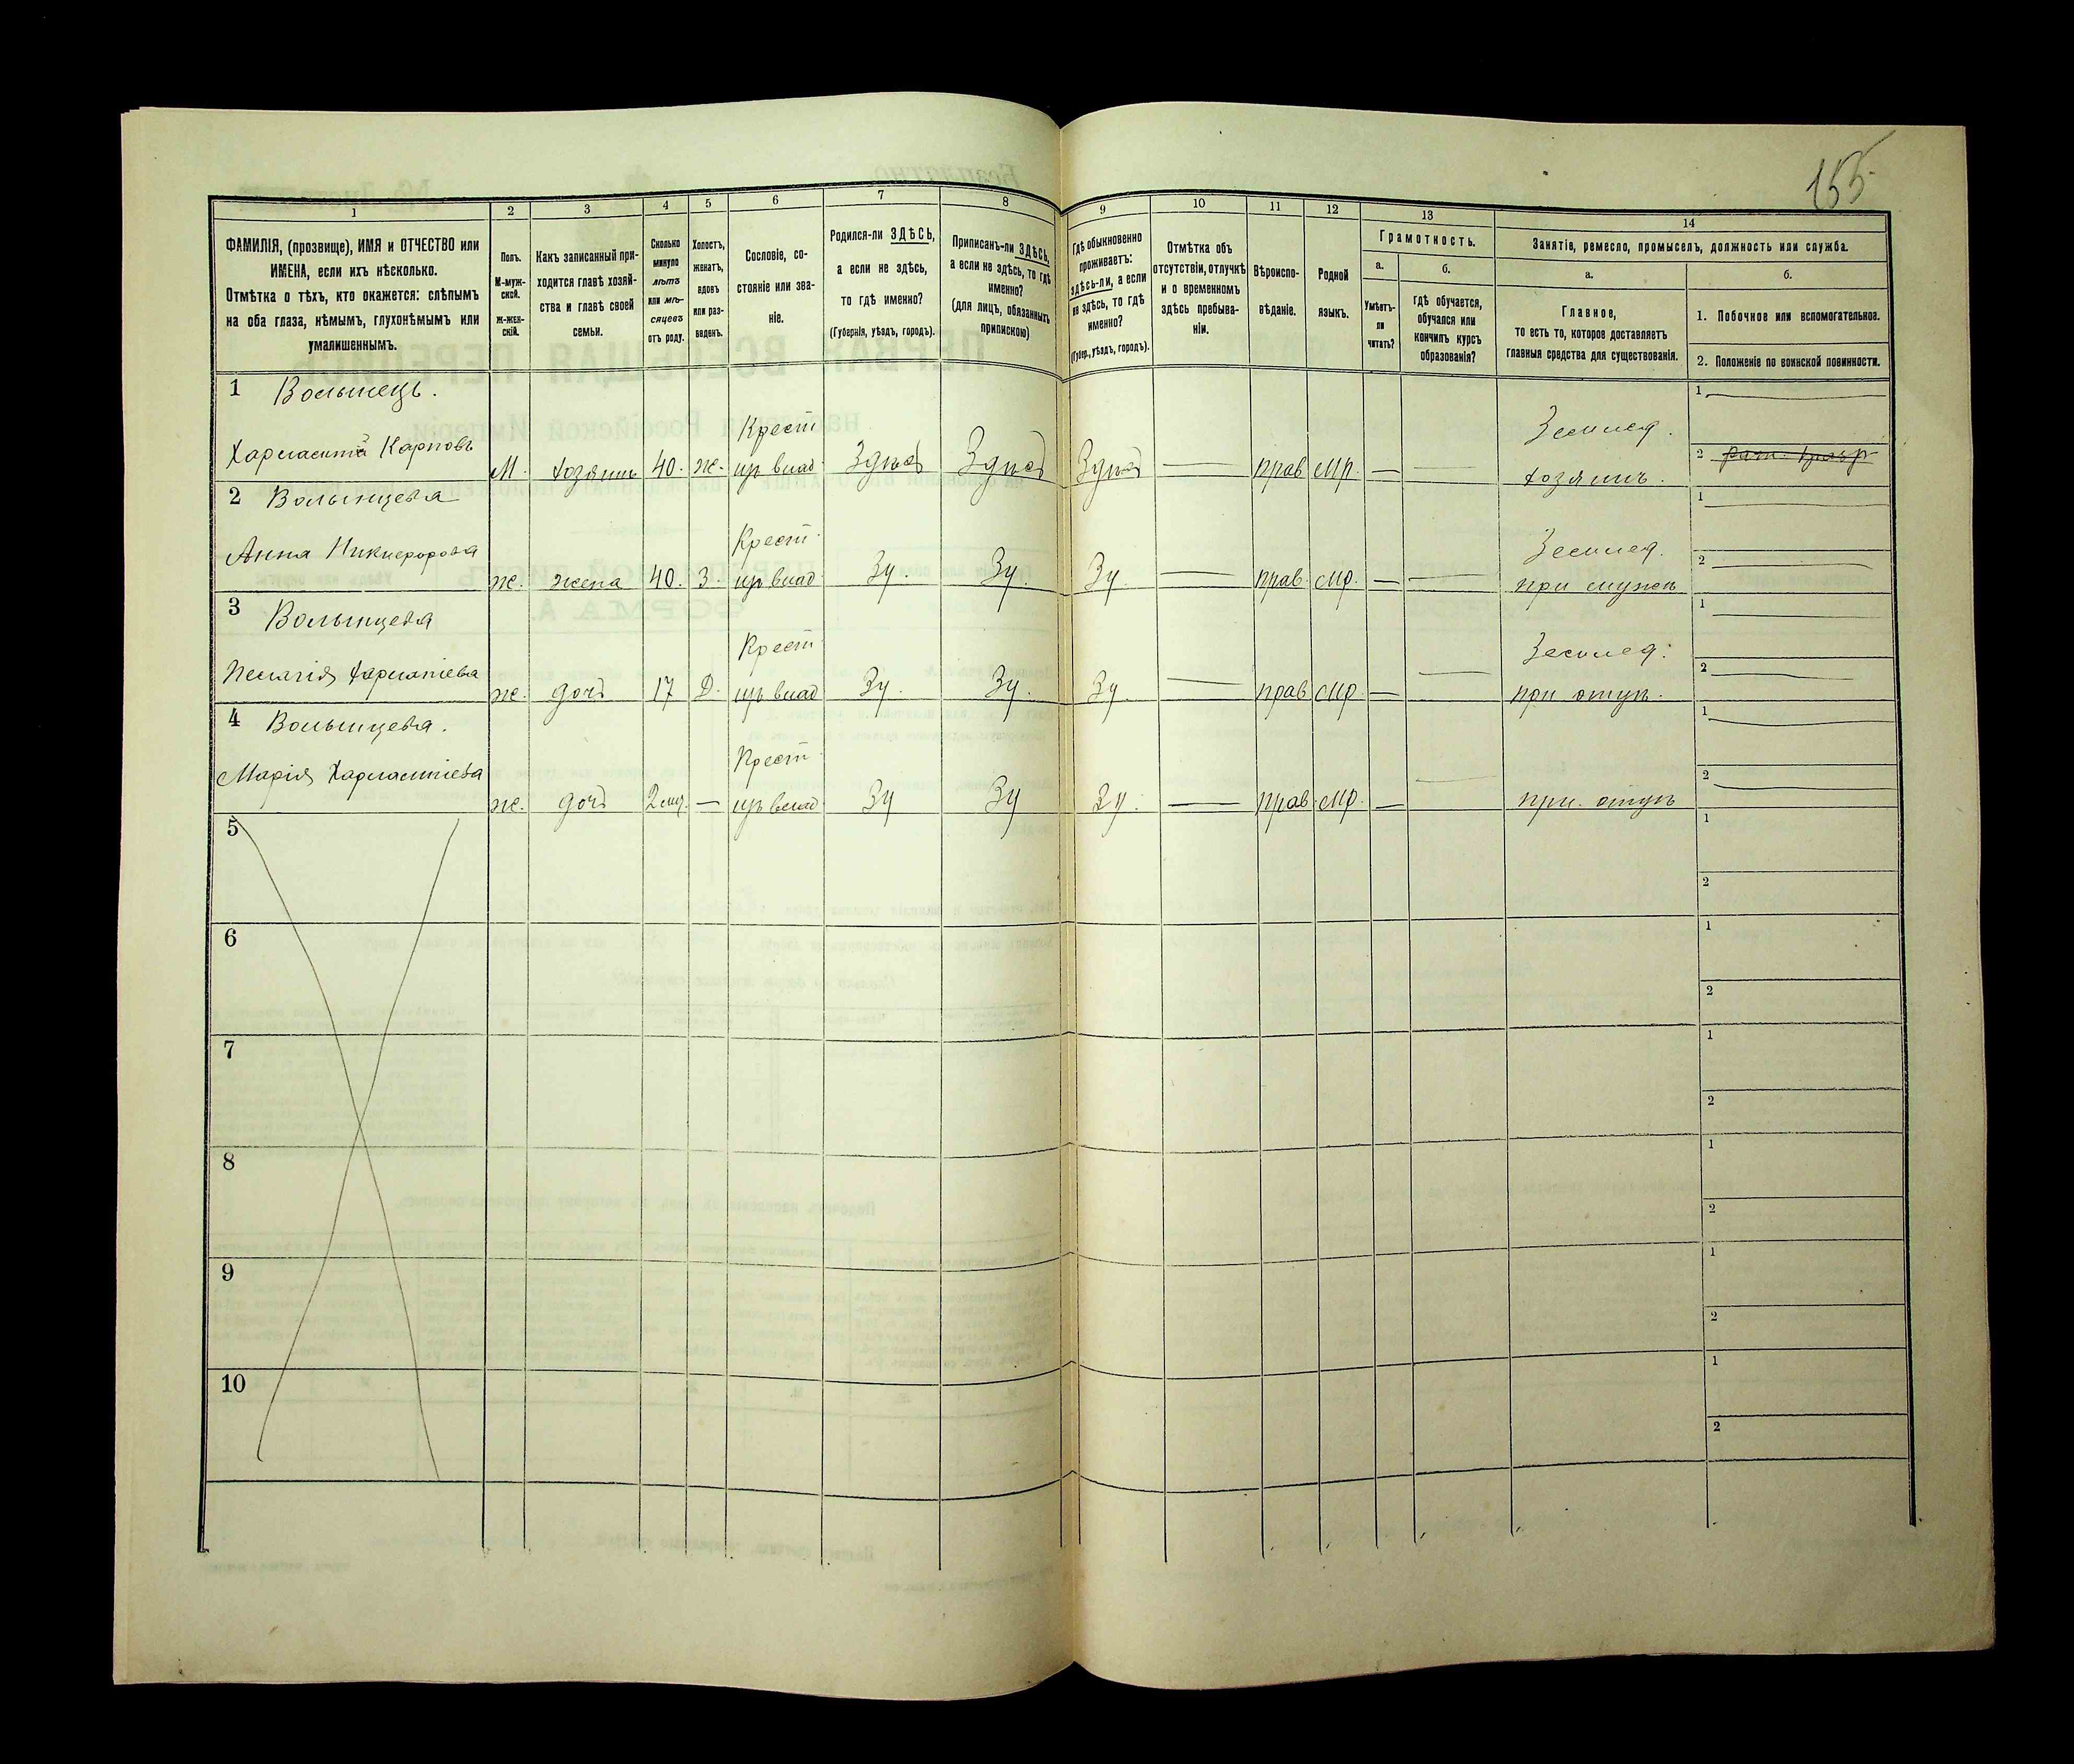 155
1 2 3 4 5 6 7 8 9 10 11 12 13 14
ФАМИЛІЯ, (прозвище), ИМЯ и ОТЧЕСТВО или
ИМЕНА, если ихъ нѣсколько.
Отмѣтка о тѣхъ, кто окажется: слѣпымъ
на оба глаза, нѣмымъ, глухонѣмымъ или
умалишеннымъ.
Полъ.
М-муж-
ской.
Ж-жен-
скій.
Какъ записанный при-
ходится главѣ хозяй-
ства и главѣ своей
семьи.
Сколько
минуло
лѣтъ
или мѣ-
сяцевъ
отъ роду.
Холостъ,
женатъ,
вдовъ
или раз-
веденъ.
Сословіе, со-
стояніе или зва-
ніе.
Родился-ли ЗДѢСЬ,
а если не здѣсь,
то гдѣ именно?
(Губернія, уѣздъ, городъ).
Приписанъ-ли ЗДѢСЬ,
а если не здѣсь, то гдѣ
именно?
(для лицъ, обязанныхъ
припискою)
Гдѣ обыкновенно
проживаетъ:
здѣсь-ли, а если
не здѣсь, то гдѣ
именно?
(Губер., уѣздъ, городъ).
Отмѣтка объ
отсутствіи, отлучкѣ
и о временномъ
здѣсь пребыва-
ніи.
Вѣроиспо-
вѣданіе.
Родной
языкъ.
Грамотность.
а.
Умѣетъ-
ли
читать?
б.
гдѣ обучается,
обучался или
кончилъ курсъ
образованія?
Занятіе, ремесло, промыселъ, должность или служба.
а.
Главное,
то есть то, которое доставляетъ
главныя средства для существованія.
б.
1. Побочное или вспомогательное.
2. Положеніе по воинской повинности.
1 Волынецъ. 1
Крест Землед.
Харлампій Карповъ М. хозяинъ 40. ж. из влад Здѣсь Здѣсь Здѣсь — прав мр. — — хозяинъ. 2
2 Волынцева 1
Крест Землед.
Анна Никифорова ж. жена 40. З. из влад Зд. Зд. Зд. — прав. мр. — — при мужѣ 2
3 Волынцева 1
Крест Землед.
Пелагія Харлампіева ж. дочь 17 Д. из влад Зд. Зд. Зд. — прав мр. — — при отцѣ. 2
4 Волынцева. 1
Крест
Марія Харлампіева ж. дочь 2 мѣс. — из влад Зд Зд Зд. — прав. мр. — — при. отцѣ 2
5 1
2
6 1
2
7 1
2
8 1
2
9 1
2
10 1
2